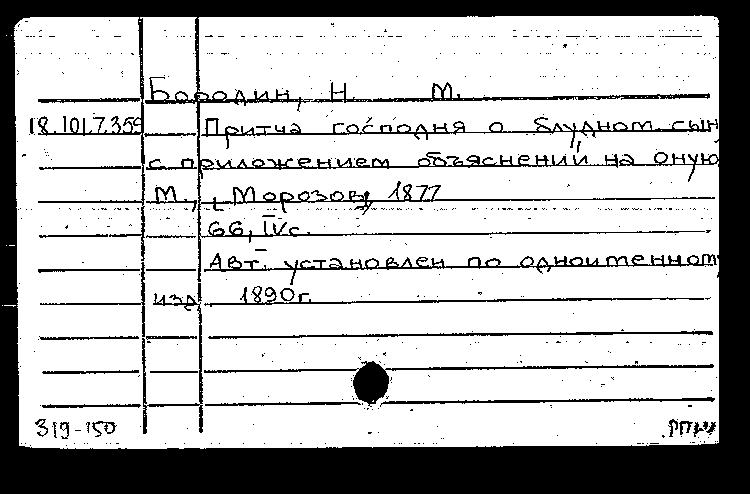 Бородин, Н. М.
18.101.7.359 Притча господня о блудном сын
с приложением объяснений на оную
М., [Морозов], 1877
66, IV с.
Авт. установлен по одноименному
изд. 1890г.
319-150